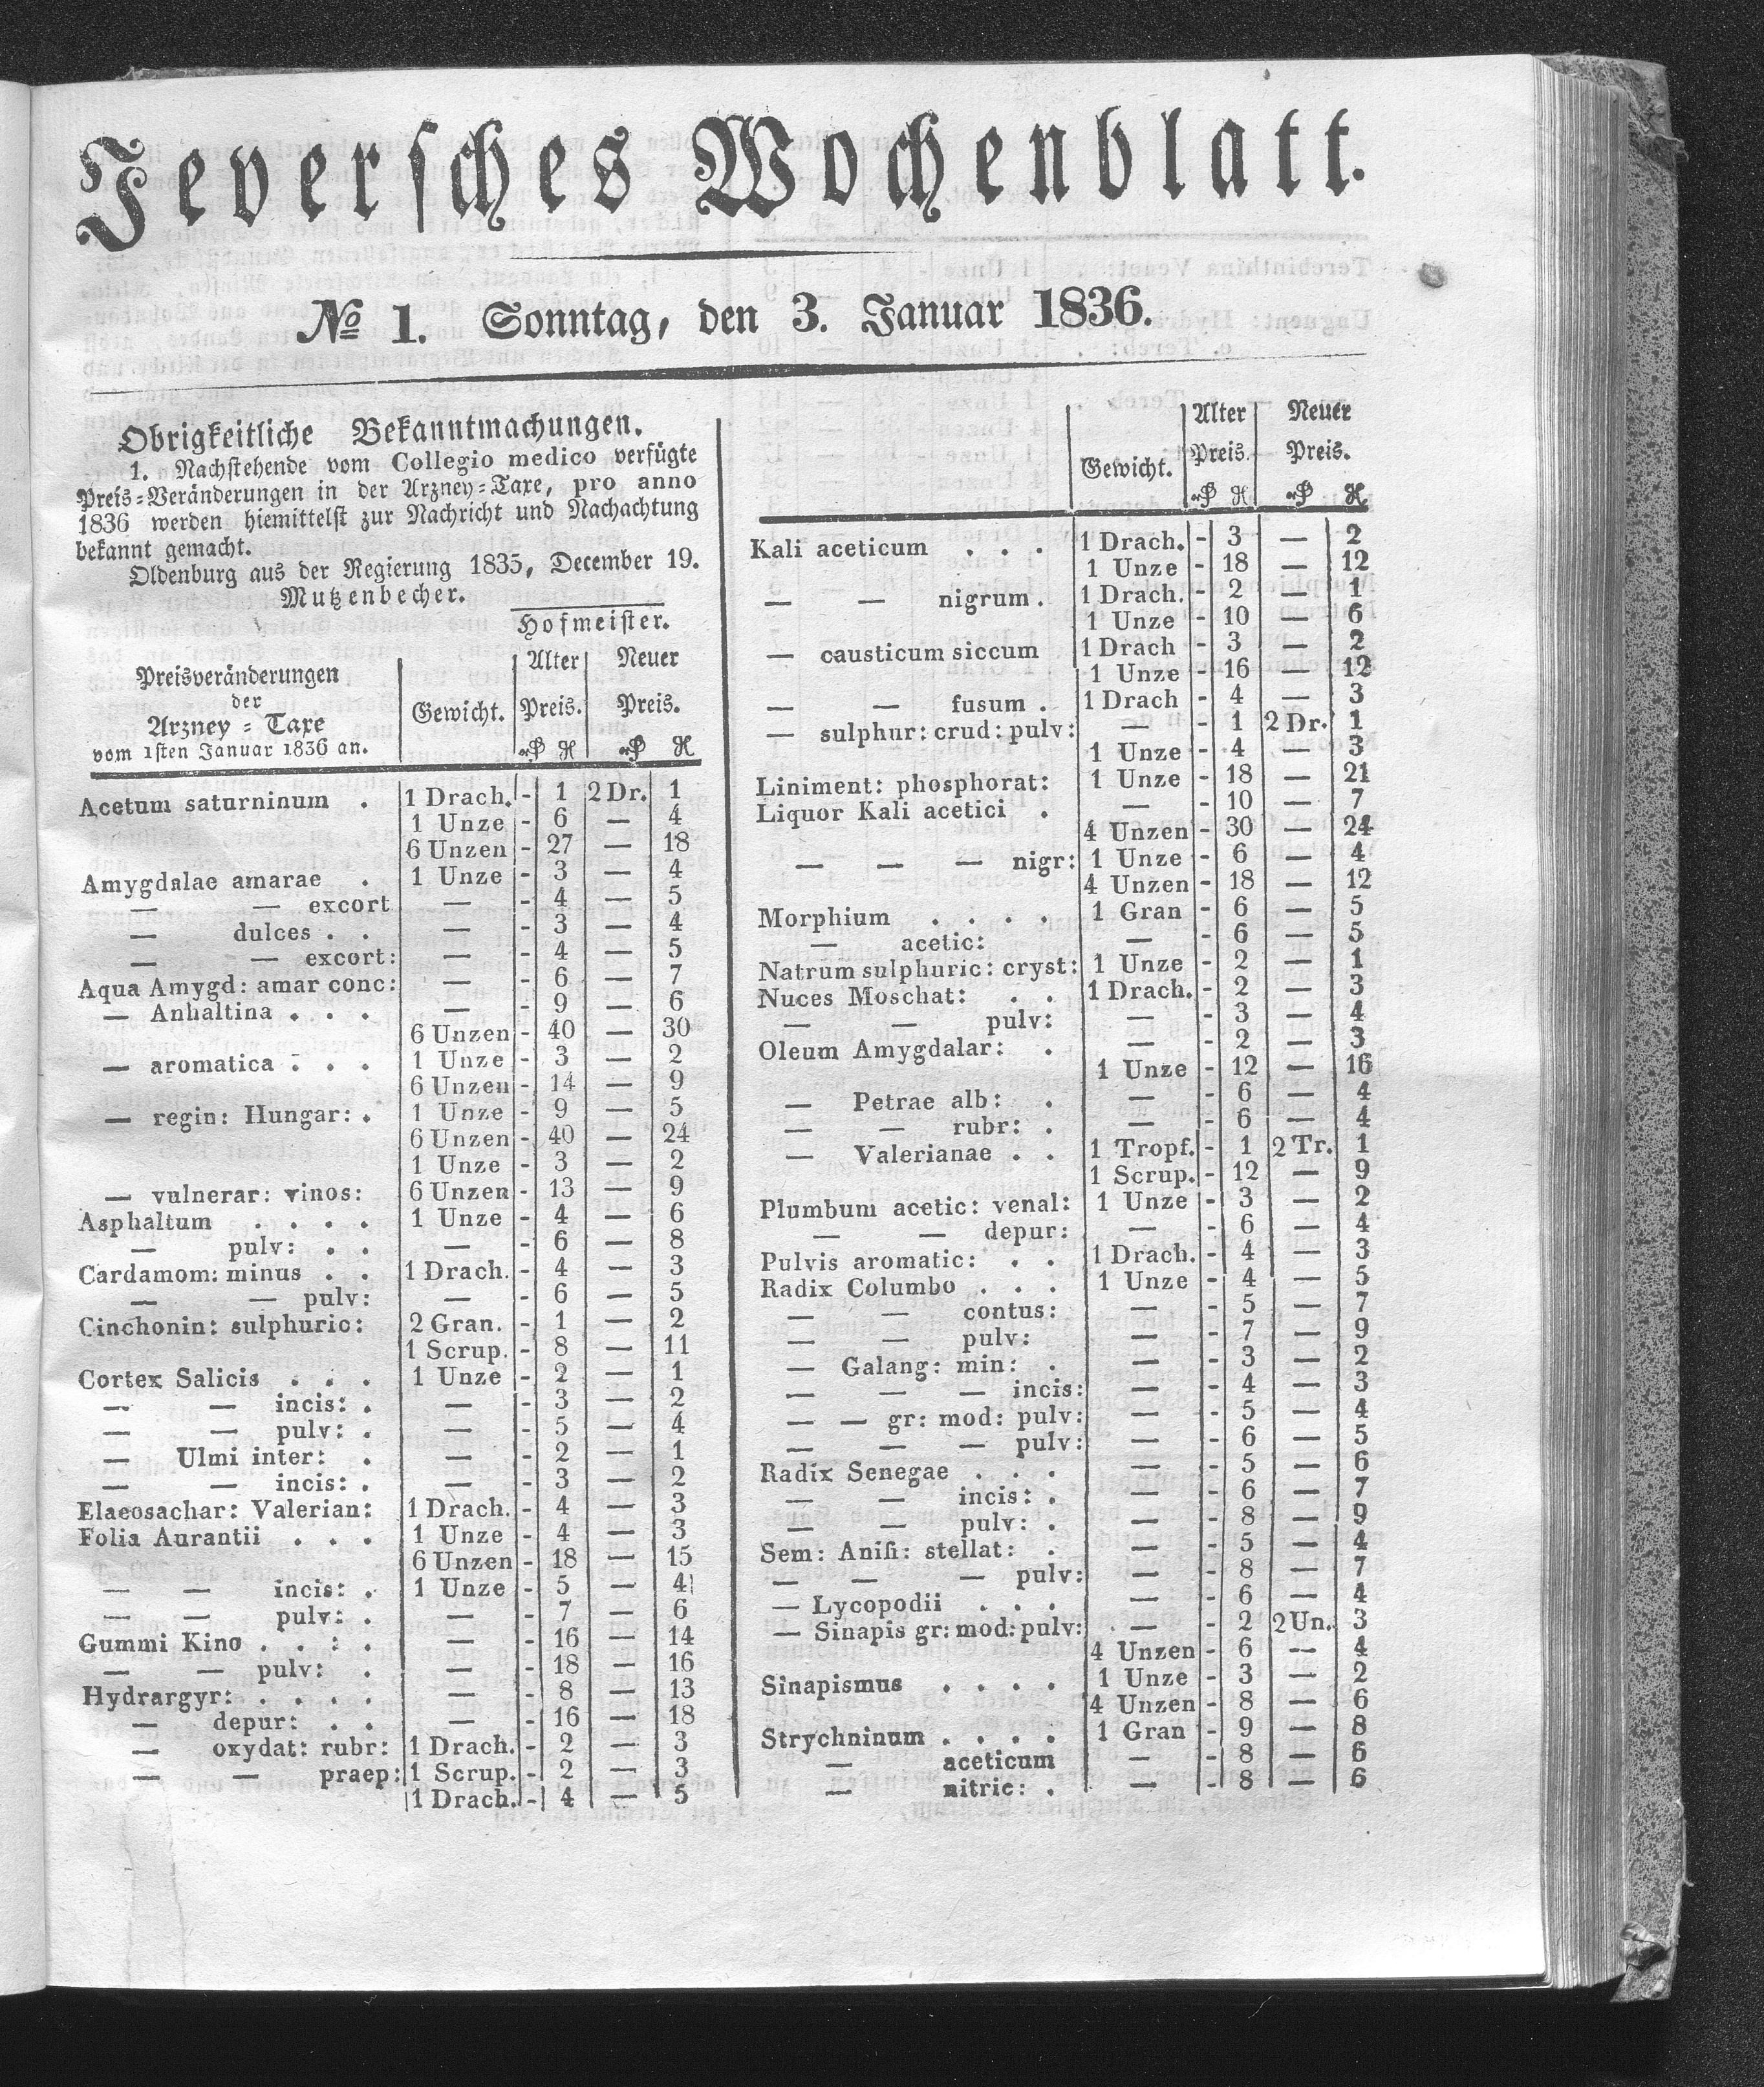 Jeversches Wochenblatt.
№ 1. Sonntag, den 3. Januar 1836.
Obrigkeitliche Bekanntmachungen.
1. Nachstehende vom Collegio medico verfügte
Preis=Veränderungen in der Arzney=Taxe, pro anno
1836 werden hiemittelst zur Nachricht und Nachachtung
bekannt gemacht.
Oldenburg aus der Regierung 1835, December 19.
Mutzenbecher.
Hofmeister.
Preisveränderungen
der
Arzney = Taxe
vom 1sten Januar 1836 an.
Gewicht.
Alter Preis.
Neuer Preis.
Acetum saturninum . 1 Drach. - 1 2 Dr. 1
1 Unze - 6 — 4
6 Unzen - 27 — 18
Amygdalae amarae . 1 Unze - 3 — 4
— — excort — - 4 — 5
— dulces . . — - 3 — 4
— — excort: — - 4 — 5
Aqua Amygd: amar conc: — - 6 — 7
— Anhaltina . . . — - 9 — 6
6 Unzen - 40 — 30
— aromatica . . . 1 Unze - 3 — 2
6 Unzen - 14 — 9
— regin: Hungar: . 1 Unze - 9 — 5
6 Unzen - 40 — 24
1 Unze - 3 — 2
— vulnerar: vinos: 6 Unzen - 13 — 9
Asphaltum . . . . 1 Unze - 4 — 6
— pulv: . . — - 6 — 8
Cardamom: minus . . 1 Drach. - 4 — 3
— — pulv: — - 6 — 5
Cinchonin: sulphuric: 2 Gran. - 1 — 2
1 Scrup. - 8 — 11
Cortex Salicis . . . 1 Unze - 2 — 1
— — incis: . — - 3 — 2
— — pulv: . — - 5 — 4
— Ulmi inter: . — - 2 — 1
— — incis: . — - 3 — 2
Elaeosachar: Valerian: 1 Drach. - 4 — 3
Folia Aurantii . . . 1 Unze - 4 — 3
6 Unzen - 18 — 15
— — incis: . 1 Unze - 5 — 4
— — pulv: . — - 7 — 6
Gummi Kino . . : . — - 16 — 14
— — pulv: . — - 18 — 16
Hydrargyr: . . . . — - 8 — 13
— depur: . . — - 16 — 18
— oxydat: rubr: 1 Drach. - 2 — 3
— — praep: 1 Scrup. - 2 — 3
1 Drach. - 4 — 5
Gewicht.
Alter Preis.
Neuer Preis.
Kali aceticum . . . 1 Drach. - 3 — 2
1 Unze - 18 — 12
— — nigrum . 1 Drach. - 2 — 1
1 Unze - 10 — 6
— causticum siccum 1 Drach - 3 — 2
1 Unze - 16 — 12
— — fusum . 1 Drach - 4 — 3
— sulphur: crud: pulv: — - 1 2 Dr. 1
1 Unze - 4 — 3
Liniment: phosphorat: 1 Unze - 18 — 21
Liquor Kali acetici . — - 10 — 7
4 Unzen - 30 — 24
— — — nigr: 1 Unze - 6 — 4
4 Unzen - 18 — 12
Morphium . . . . 1 Gran - 6 — 5
— acetic: — - 6 — 5
Natrum sulphuric: cryst: 1 Unze - 2 — 1
Nuces Moschat: . . 1 Drach. - 2 — 3
— — pulv: — - 3 — 4
Oleum Amygdalar: . — - 2 — 3
1 Unze - 12 — 16
— Petrae alb: . — - 6 — 4
— — rubr: . — - 6 — 4
— Valerianae . . 1 Tropf. - 1 2 Tr. 1
1 Scrup. - 12 — 9
Plumbum acetic: venal: 1 Unze - 3 — 2
— — depur: — - 6 — 4
Pulvis aromatic: . . 1 Drach. - 4 — 3
Radix Columbo . . . 1 Unze - 4 — 5
— — contus: — - 5 — 7
— — pulv: — - 7 — 9
— Galang: min: . — - 3 — 2
— — — incis: — - 4 — 3
— — gr: mod: pulv: — - 5 — 4
— — — pulv: — - 6 — 5
Radix Senegae . . . — - 5 — 6
— — incis: . — - 6 — 7
— — pulv: . — - 8 — 9
Sem: Anisi: stellat: . — - 5 — 4
— — — pulv: — - 8 — 7
— Lycopodii . . . — - 6 — 4
— Sinapis gr: mod: pulv: — - 2 2 Un. 3
4 Unzen - 6 — 4
Sinapismus . . . . 1 Unze - 3 — 2
4 Unzen - 8 — 6
Strychninum . . . . 1 Gran - 9 — 8
— aceticum — - 8 — 6
— nitric: . — - 8 — 6